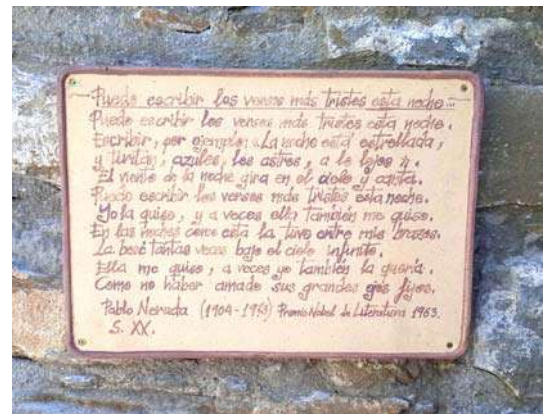 Puedo escribir los versos más tristes esta noche...
Puedo escribir los versos más tristes esta noche.
Escribir, por ejemplo: «La noche está estrellada,
y tiritan, azules, los astros, a lo lejos».
El viento de la noche gira en el cielo y canta.
Puedo escribir los versos más tristes esta noche.
Yo la quise, y a veces ella también me quiso.
En las noches como esta la tuve entre mis brazos.
La besé tantas veces bajo el cielo infinito.
Ella me quiso, a veces yo también la quería.
Como no haber amado sus grandes ojos fijos.
Pablo Neruda (1904-1973) Premio Nobel de Literatura 1963.
S. XX.